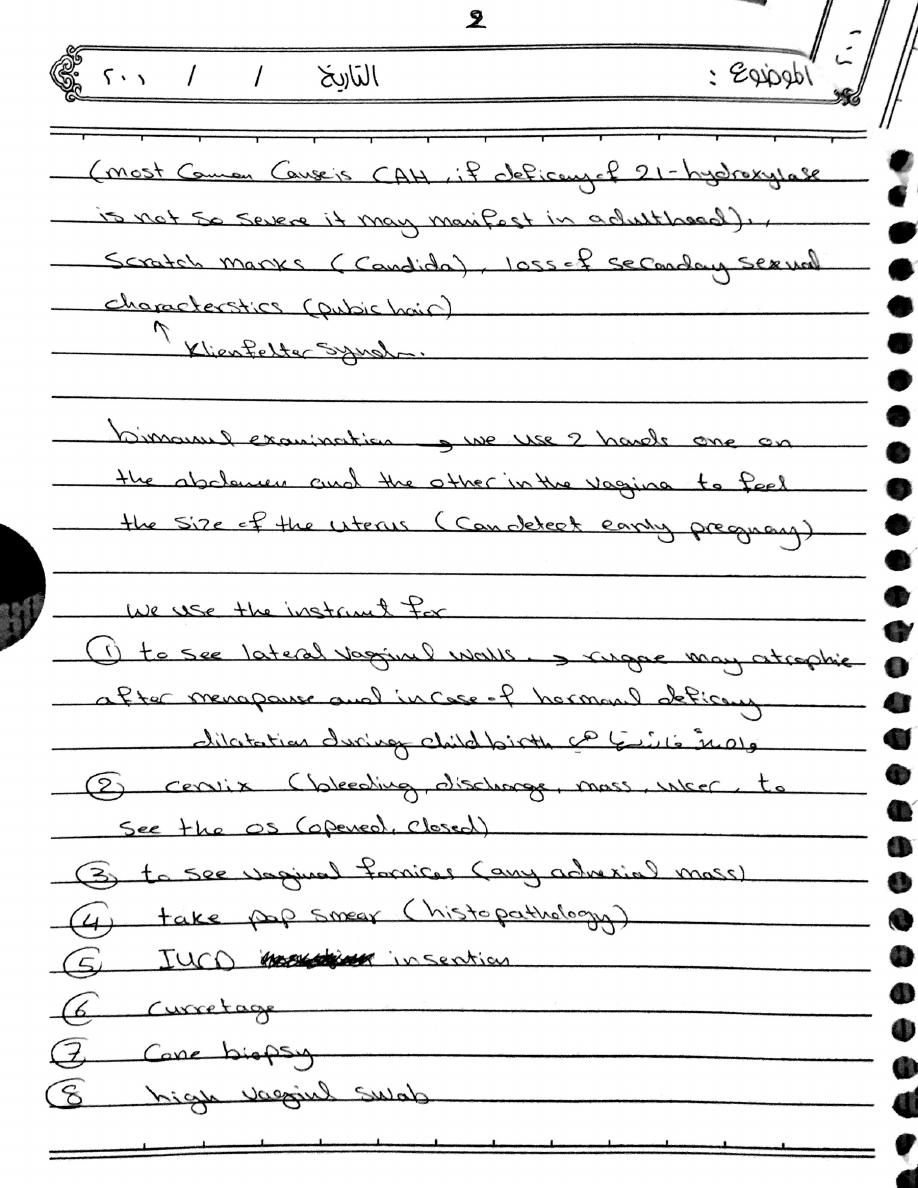 2
الموضوع : التاريخ / / ٢٠٠١
(most Common Cause is CAH, if deficency of 21-hydroxylase
is not so severe it may manifest in adulthood)..
Scratch marks (Candida), loss of seconday sexual
characterstics (pubic hair)
↑ Klienfelter Synd.
bimanul examination → we use 2 hands one on
the abdomen and the other in the vagina to feel
the size of the uterus (Can detect early pregnancy)
we use the instrumt for
① to see lateral vaginal walls. → rugae may atrophie
after menopause and in case of hormonl deficency
dilatation during child birth
② cervix (bleeding, discharge, mass, ulcer, to
see the os (opened, closed)
③ to see vaginal fornices (any adnexial mass)
④ take pap smear (histopathology)
⑤ IUCD insention
⑥ Curretage
⑦ Cone biopsy
⑧ high vaginl swab